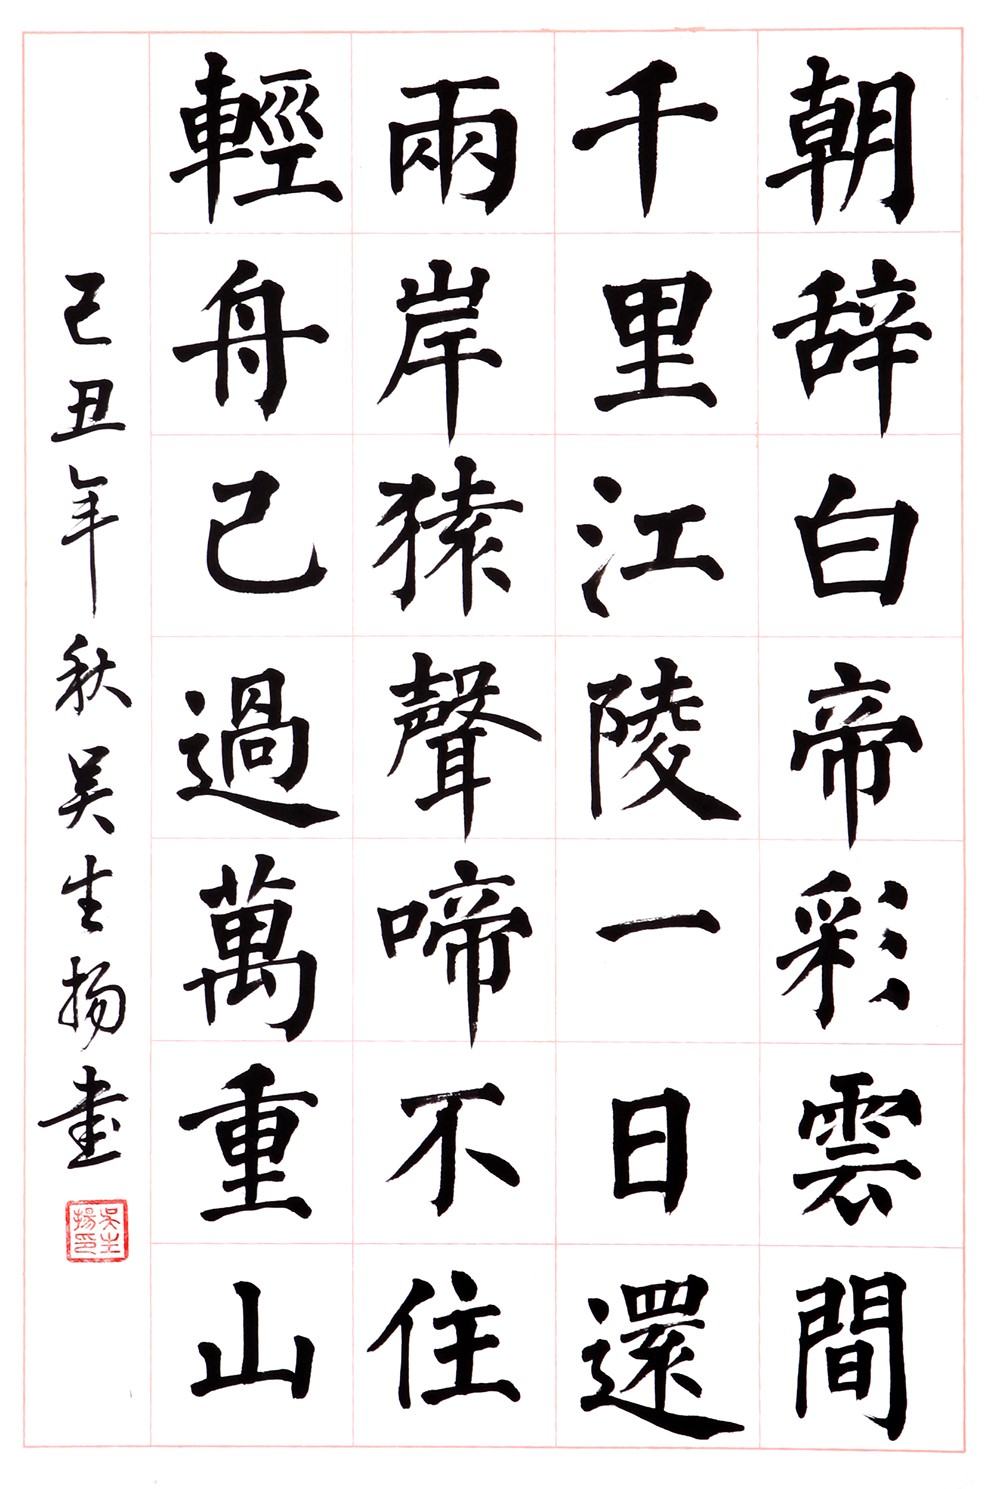 朝辞白帝彩雲間
千里江陵一日還
兩岸猿聲啼不住
輕舟已過萬重山
己丑年秋吴生扬书
吳生揚印